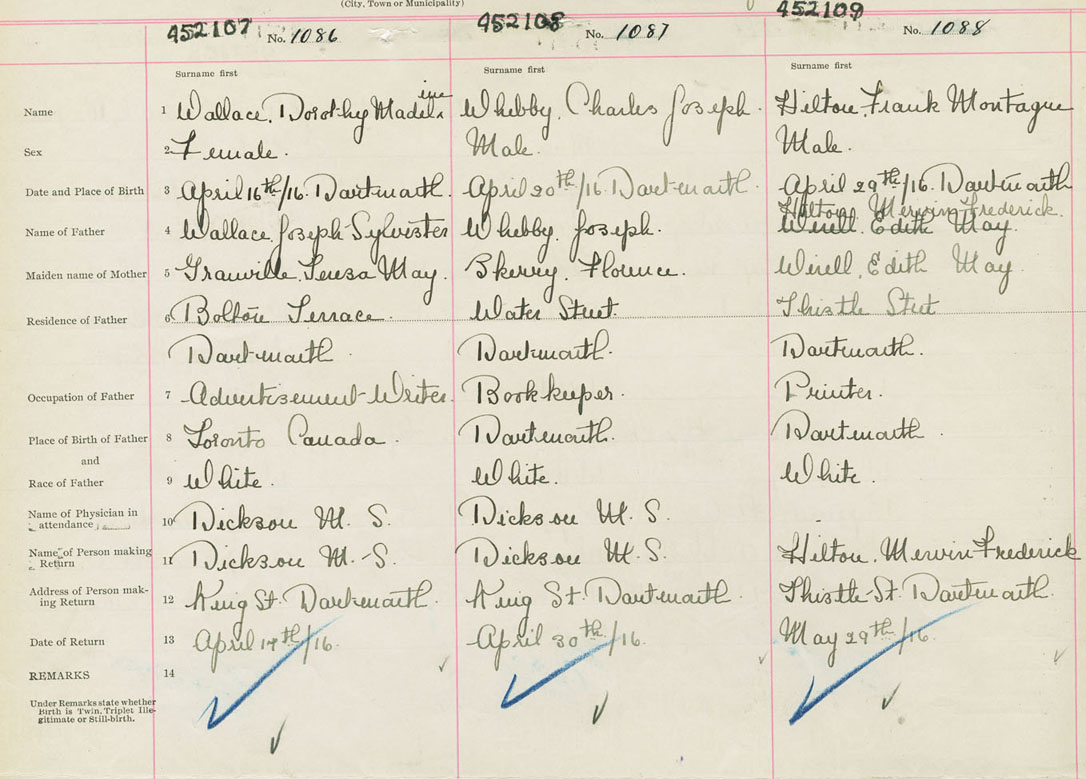 (City, Town or Municipality)
452107 No. 1086 452108 No. 1087 452109 No. 1088
Surname first Surname first Surname first
Name 1 Wallace, Dorothy Madeline Whebby, Charles Joseph. Hilton, Frank Montague
Sex 2 Female. Male. Male.
Date and Place of Birth 3 April 16th/16. Dartmouth. April 20th/16. Dartmouth. April 29th/16. Dartmouth
Hilton, Mervin Frederick.
Name of Father 4 Wallace, Joseph Sylvester Whebby, Joseph. Wirell, Edith May.
Maiden name of Mother 5 Granville, Teresa May. Skerry, Florence. Wirell, Edith May.
Residence of Father 6 Bolton Terrace. Water Street. Thistle Street
Dartmouth. Dartmouth. Dartmouth.
Occupation of Father 7 Advertisement-Writer. Bookkeeper. Printer.
Place of Birth of Father 8 Toronto Canada. Dartmouth. Dartmouth.
and
Race of Father 9 White. White. White.
Name of Physician in
attendance 10 Dickson M. S. Dickson M. S.
Name of Person making
Return 11 Dickson M. S. Dickson M. S. Hilton, Mervin Frederick
Address of Person mak-
ing Return 12 King St. Dartmouth. King St. Dartmouth. Thistle St. Dartmouth.
Date of Return 13 April 17th/16. April 30th/16. May 29th/16.
REMARKS 14
Under Remarks state whether
Birth is Twin, Triplet Ille-
gitimate or Still-birth.